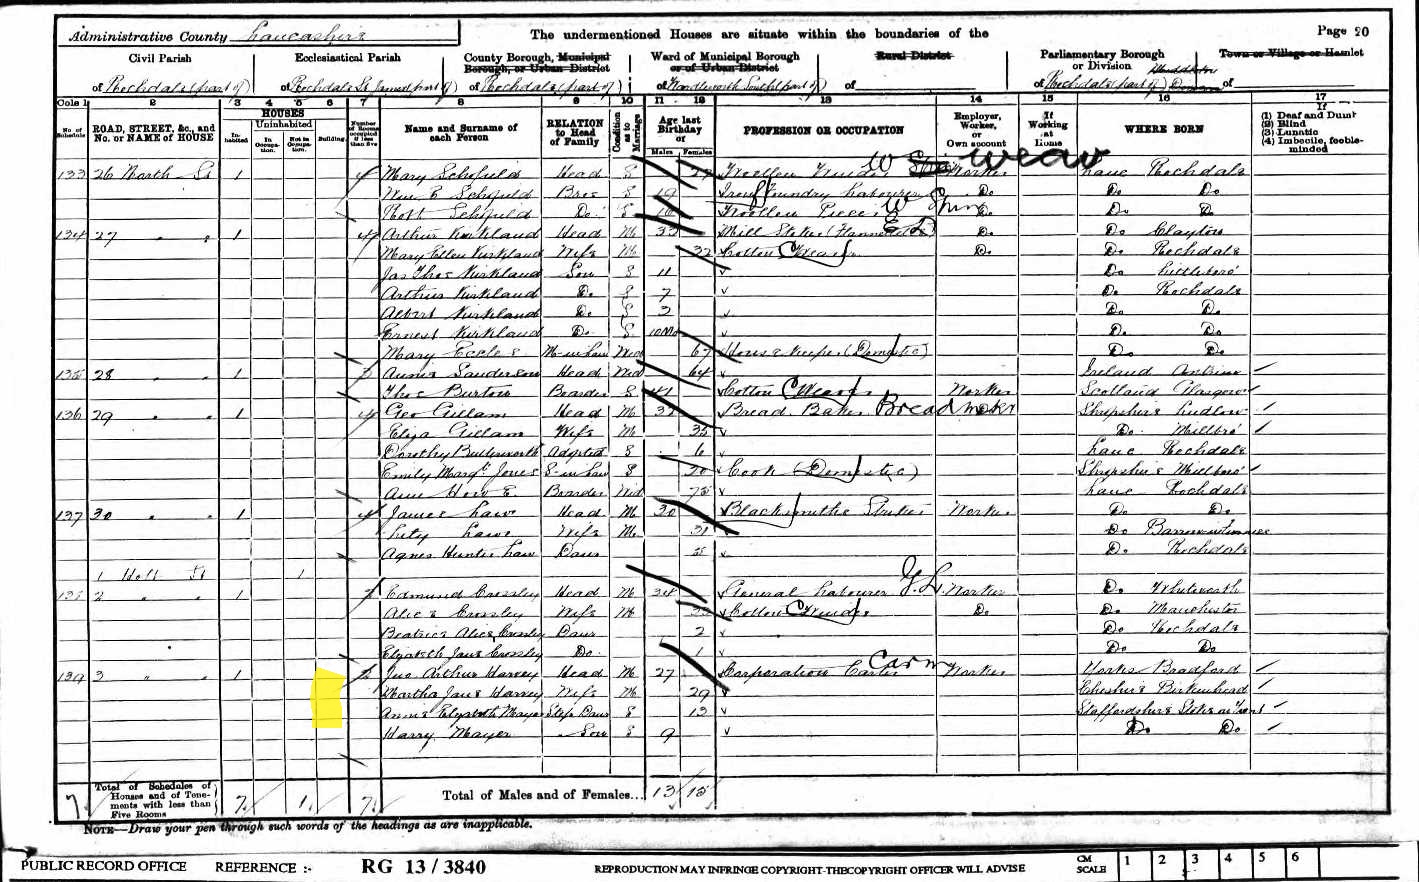 Administrative County Lancashire The undermentioned Houses are situate within the boundaries of the Page 20
Civil Parish Ecclesiastical Parish County Borough, Municipal Borough, or Urban District Ward of Municipal Borough or of Urban District Rural District Parliamentary Borough or Division Town or Village or Hamlet
of Rochdale (part of) of Rochdale St James (part of) of Rochdale (part of) of Wardleworth South (part of) of of Rochdale (part of) of
Cols 1 2 3 4 5 6 7 8 9 10 11 12 13 14 15 16 17
No. of Schedule ROAD, STREET, &c., and No. or NAME of HOUSE HOUSES Inhabited Uninhabited In Occupation. Not in Occupation. Building. Number of Rooms occupied if less than five Name and Surname of each Person RELATION to Head of Family Condition as to Marriage Age last Birthday of Males Females PROFESSION OR OCCUPATION Employer, Worker, or Own account If Working at Home WHERE BORN If (1) Deaf and Dumb (2) Blind (3) Lunatic (4) Imbecile, feeble-minded
133 26 North St 1 4 Mary Schofield Head S 27 Woollen Winder Worker Lanc Rochdale
Wm. E Schofield Bro S 19 Iron Foundry Labourer Do Do Do
Robt Schofield Do S 16 Woollen Piecer Do Do Do
134 27 " " 1 4 Arthur Kirkland Head M 33 Mill Stoker (Flannel) Do Do Clayton
Mary Ellen Kirkland Wife M 32 Cotton Weaver Do Do Rochdale
Jas Thos Kirkland Son S 11 Do Littleboro'
Arthur Kirkland Do S 7 Do Rochdale
Albert Kirkland Do S 2 Do Do
Ernest Kirkland Do S 10 Mo Do Do
Mary Eccles M-in-law Wid 67 House Keeper (Domestic) Do Do
135 28 " " 1 3 Annie Sanderson Head Wid 64 Ireland Antrim
Thos Burton Boarder S 41 Cotton Weaver Worker Scotland Glasgow
136 29 " " 1 4 Geo Gillam Head M 37 Bread Baker Bread maker Worker Shropshire Ludlow
Eliza Gillam Wife M 35 Do Millbro'
Dorothy Butterworth Adopted S 6 Lanc Rochdale
Emily Margt Jones S-in-law S 20 Cook (Domestic) Shropshire Millbro'
Ann Boarder Wid 75 Lanc Rochdale
137 30 " " 1 4 James Law Head M 30 Blacksmiths Striker Worker Do Do
Law Wife M 31 Do Barrow in Furness
Agnes Hunter Law Daur 5 Do Rochdale
1 Holt St 1
138 2 " " 1 Edmund Crossley Head M 24 General Labourer G.L. Worker Do Whitworth
Alice Crossley Wife M 23 Cotton Winder Do Do Manchester
Beatrice Alice Crossley Daur 2 Do Rochdale
Elizabeth Jane Crossley Do 1 Do Do
139 3 " " 1 Jno Arthur Harvey Head M 27 Corporation Carter Carm Worker Yorks Bradford
Martha Jane Harvey Wife M 29 Cheshire Birkenhead
Annie Elizabeth Mayer Step Daur S 13 Staffordshire Stoke on Trent
Harry Mayer " Son S 9 Do Do
7 Total of Schedules of Houses and of Tenements with less than Five Rooms 7 1 7 Total of Males and of Females... 13 15
NOTE—Draw your pen through such words of the headings as are inapplicable.
PUBLIC RECORD OFFICE REFERENCE :- RG 13 / 3840 REPRODUCTION MAY INFRINGE COPYRIGHT-THECOPYRIGHT OFFICER WILL ADVISE CM SCALE 1 2 3 4 5 6